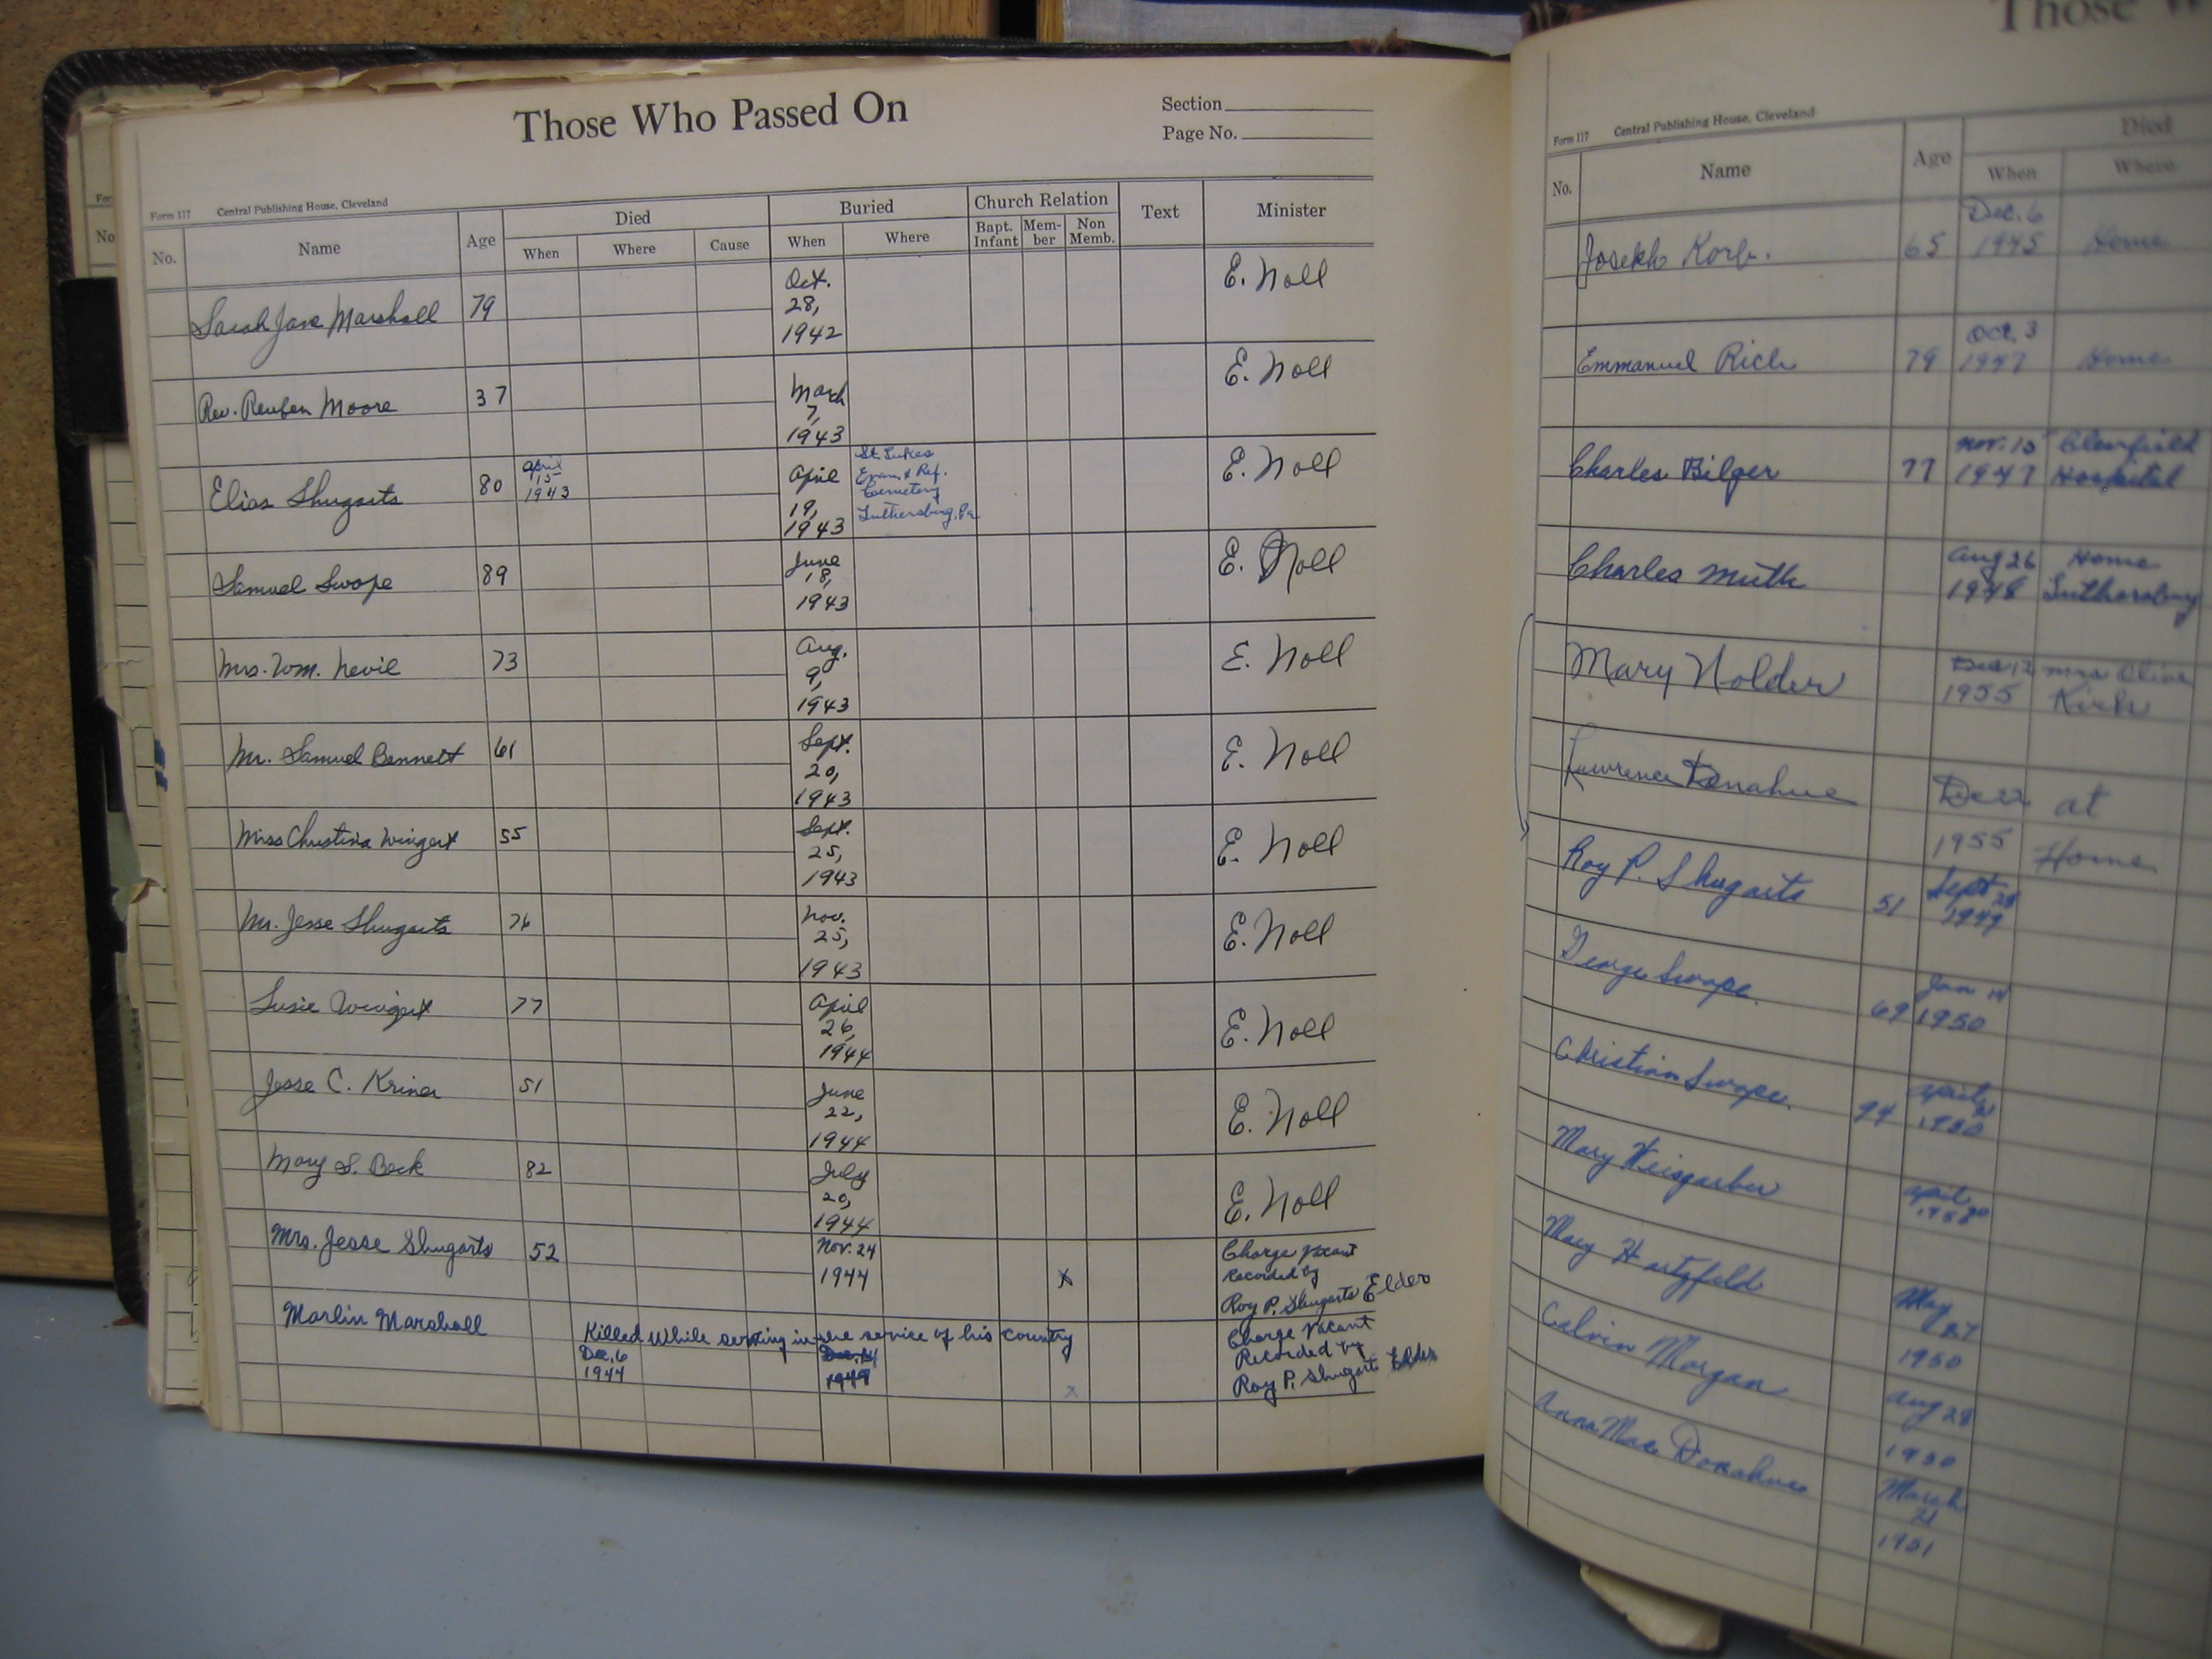 Those Who Passed On
Section
Page No.
Form 117 Central Publishing House, Cleveland
No. Name Age Died Buried Church Relation Text Minister
When Where Cause When Where Bapt. Infant Mem-ber Non Memb.
Sarah Jane Marshall 79 Oct. 28, 1942 E. Noll
Rev. Reuben Moore 37 March 7, 1943 E. Noll
Elias Shugarts 80 April 15 1943 April 19, 1943 St. Lukes Evan. & Ref. Cemetery Luthersburg, Pa E. Noll
Samuel Swope 89 June 18, 1943 E. Noll
Mrs. Wm. Nevil 73 Aug. 9, 1943 E. Noll
Mr. Samuel Bennett 61 Sept. 20, 1943 E. Noll
Miss Christina Wingert 55 Sept. 25, 1943 E. Noll
Mr. Jesse Shugarts 76 Nov. 25, 1943 E. Noll
Susie Wingert 77 April 26, 1944 E. Noll
Jesse C. Kriner 51 June 22, 1944 E. Noll
Mary S. Beck 82 July 20, 1944 E. Noll
Mrs. Jesse Shugarts 52 Nov. 24 1944 x Charge Vacant Recorded by Roy P. Shugarts Elder
Marlin Marshall Killed While serving in the service of his country
Dec. 6 1944 x Charge Vacant Recorded by Roy P. Shugarts Elder
Those W
Form 117 Central Publishing House, Cleveland
No. Name Age Died
When Where
Joseph Korb. 65 Dec. 6 1945 Home
Emmanuel Rich 79 Oct. 3 1947 Home
Charles Bilger 77 Nov. 15 1947 Clearfield Hospital
Charles Muth Aug 26 1948 Home Luthersburg
Mary Nolder 1955 Mrs Olive Kirk
Lawrence Donahue Dec 22 1955 at Home
Roy P. Shugarts 51 Sept 28 1949
George Swope. 69 Jan 14 1950
Christian Swope. 94 April 1950
Mary Weisgarber April
Mary Hartzfeld May 27 1950
Calvin Morgan Aug 28 1950
Anna Mae Donahue March 21 1951